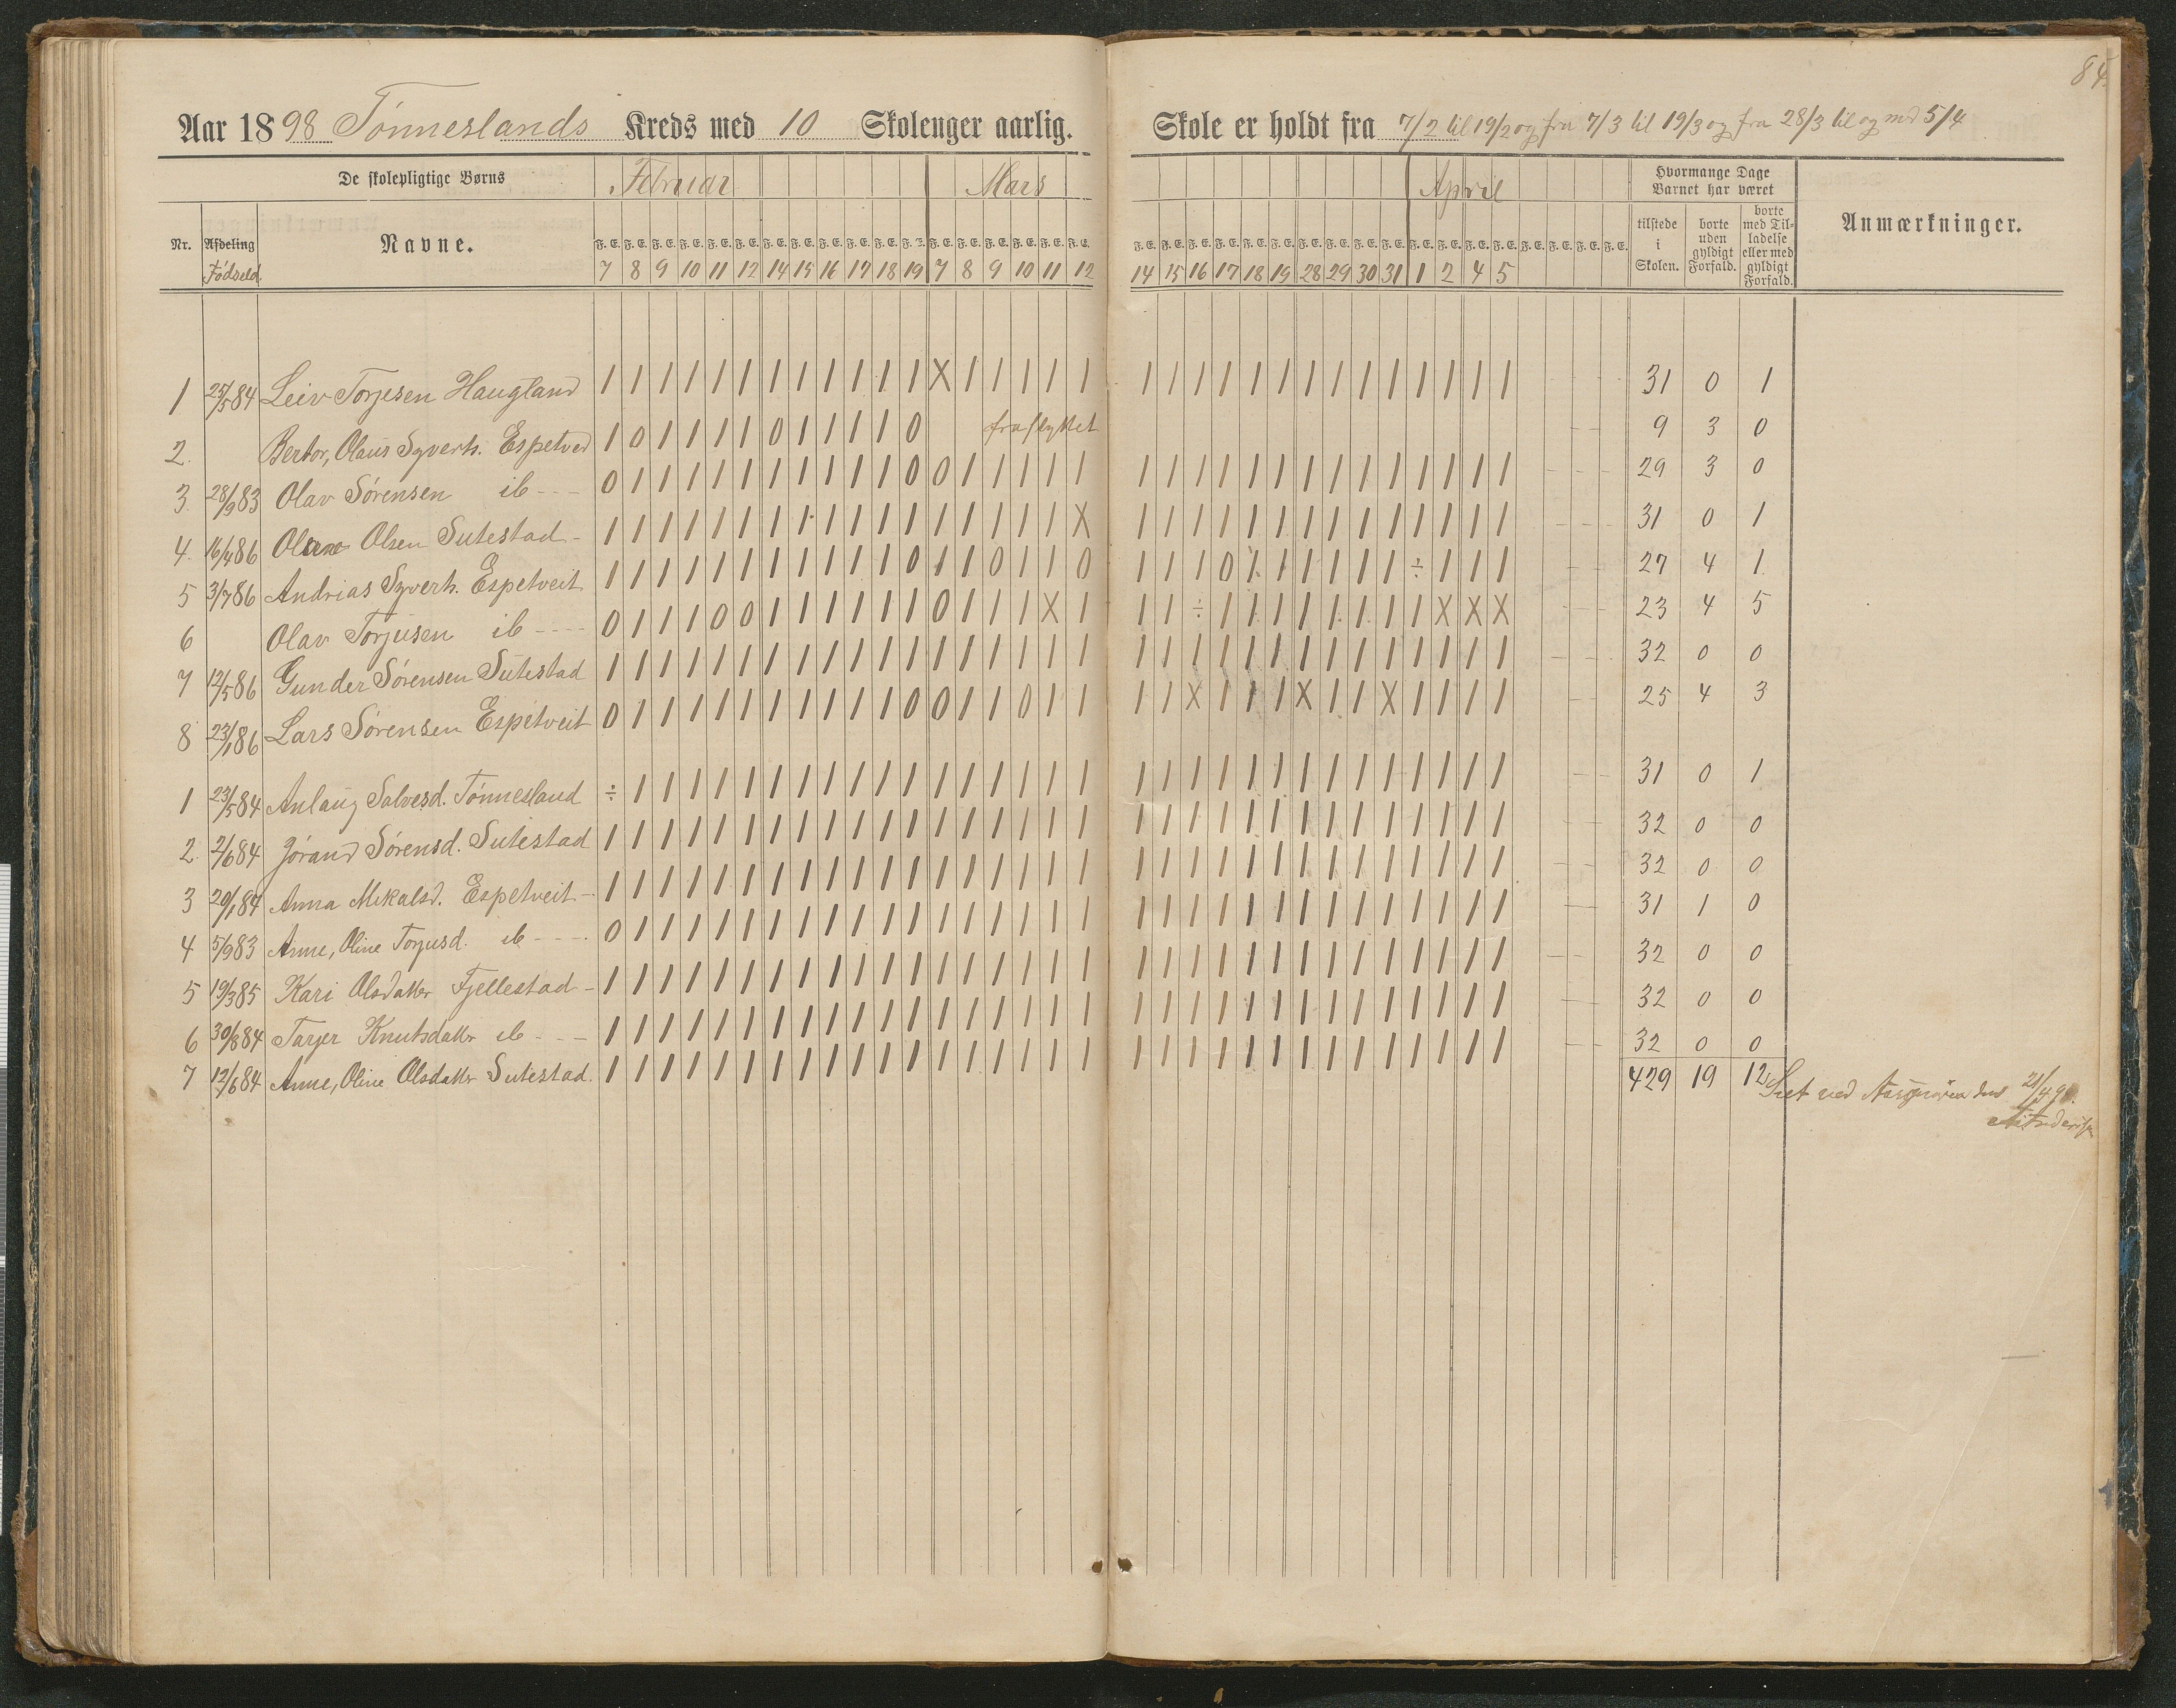 84.
Aar 1898 Tónneslands Kreds med 10 Skoleuger aarlig. Skole er holdt fra 7/2 til 19/2 og fra 7/3 til 19/3 og fra 28/3 til og med 5/4
De skolepligtige Børns Februar Mars April Hvormange Dage Barnet har været
Nr. Afdeling Fódseld Navne. F. E. F. E. F. E. F. E. F. E. F. E. F. E. F. E. F. E. F. E. F. E. F. E. F. E. F. E. F. E. F. E. F. E. F. E. F. E. F. E. F. E. F. E. F. E. F. E. F. E. F. E. F. E. F. E. F. E. F. E. F. E. F. E. F. E. F. E. F. E. F. E. tilstede i Skolen. borte uden gyldigt Forfald. borte med Tilladelse eller med gyldigt Forfald. Anmærkninger.
7 8 9 10 11 12 14 15 16 17 18 19 7 8 9 10 11 12 14 15 16 17 18 19 28 29 30 31 1 2 4 5
1 25/5 84 Leiv Torjesen Haugland 1 1 1 1 1 1 1 1 1 1 1 1 X 1 1 1 1 1 1 1 1 1 1 1 1 1 1 1 1 1 1 1 31 0 1
2. Bertor, Olaus Syverts. Espetved 1 0 1 1 1 1 0 1 1 1 1 0 fraflyttet 9 3 0
3. 28/9 83 Olav Sórensen ib - - - 0 1 1 1 1 1 1 1 1 1 1 0 0 1 1 1 1 1 1 1 1 1 1 1 1 1 1 1 1 1 1 1 29 3 0
4. 16/4 86 Olsen Sutestad - 1 1 1 1 1 1 1 1 1 1 1 1 1 1 1 1 1 X 1 1 1 1 1 1 1 1 1 1 1 1 1 1 31 0 1
5 3/7 86 Andrias Syverts. Espetveit 1 1 1 1 1 1 1 1 1 1 1 0 1 1 0 1 1 0 1 1 1 0 1 1 1 1 1 1 ÷ 1 1 1 27 4 1
6 Olav Torjusen ib - - - - 0 1 1 1 0 0 1 1 1 1 1 1 0 1 1 1 X 1 1 1 ÷ 1 1 1 1 1 1 1 1 X X X 23 4 5
7 12/5 86 Gunder Sórensen Sutestad 1 1 1 1 1 1 1 1 1 1 1 1 1 1 1 1 1 1 1 1 1 1 1 1 1 1 1 1 1 1 1 1 32 0 0
8 23/1 86 Lars Sórensen Espetveit 0 1 1 1 1 1 1 1 1 1 1 0 0 1 1 0 1 1 1 1 X 1 1 1 X 1 1 X 1 1 1 1 25 4 3
1 23/5 84 Anlaug Salvesd. Tónnesland ÷ 1 1 1 1 1 1 1 1 1 1 1 1 1 1 1 1 1 1 1 1 1 1 1 1 1 1 1 1 1 1 1 31 0 1
2. 2/6 84 Jórand Sórensd. Sutestad 1 1 1 1 1 1 1 1 1 1 1 1 1 1 1 1 1 1 1 1 1 1 1 1 1 1 1 1 1 1 1 1 32 0 0
3 20/1 84 Anna Mikalsd. Espetveit - 1 1 1 1 1 1 1 1 1 1 1 1 1 1 1 1 1 1 1 1 1 1 1 1 1 1 1 1 1 1 1 1 32 0 0
4 5/9 83 Anne, Oline Torjusd. ib - - - - 0 1 1 1 1 1 1 1 1 1 1 1 1 1 1 1 1 1 1 1 1 1 1 1 1 1 1 1 1 1 1 1 31 1 0
5 19/3 85 Kari Olsdatter Fjellestad - 1 1 1 1 1 1 1 1 1 1 1 1 1 1 1 1 1 1 1 1 1 1 1 1 1 1 1 1 1 1 1 1 32 0 0
6 30/8 84 Tarjer Knutsdatter ib - - - 1 1 1 1 1 1 1 1 1 1 1 1 1 1 1 1 1 1 1 1 1 1 1 1 1 1 1 1 1 1 1 1 32 0 0
7 12/6 84 Anne, Oline Olsdatter Sutestad. 1 1 1 1 1 1 1 1 1 1 1 1 1 1 1 1 1 1 1 1 1 1 1 1 1 1 1 1 1 1 1 1 32 0 0
429 19 12
Seet ved 21/4 98.